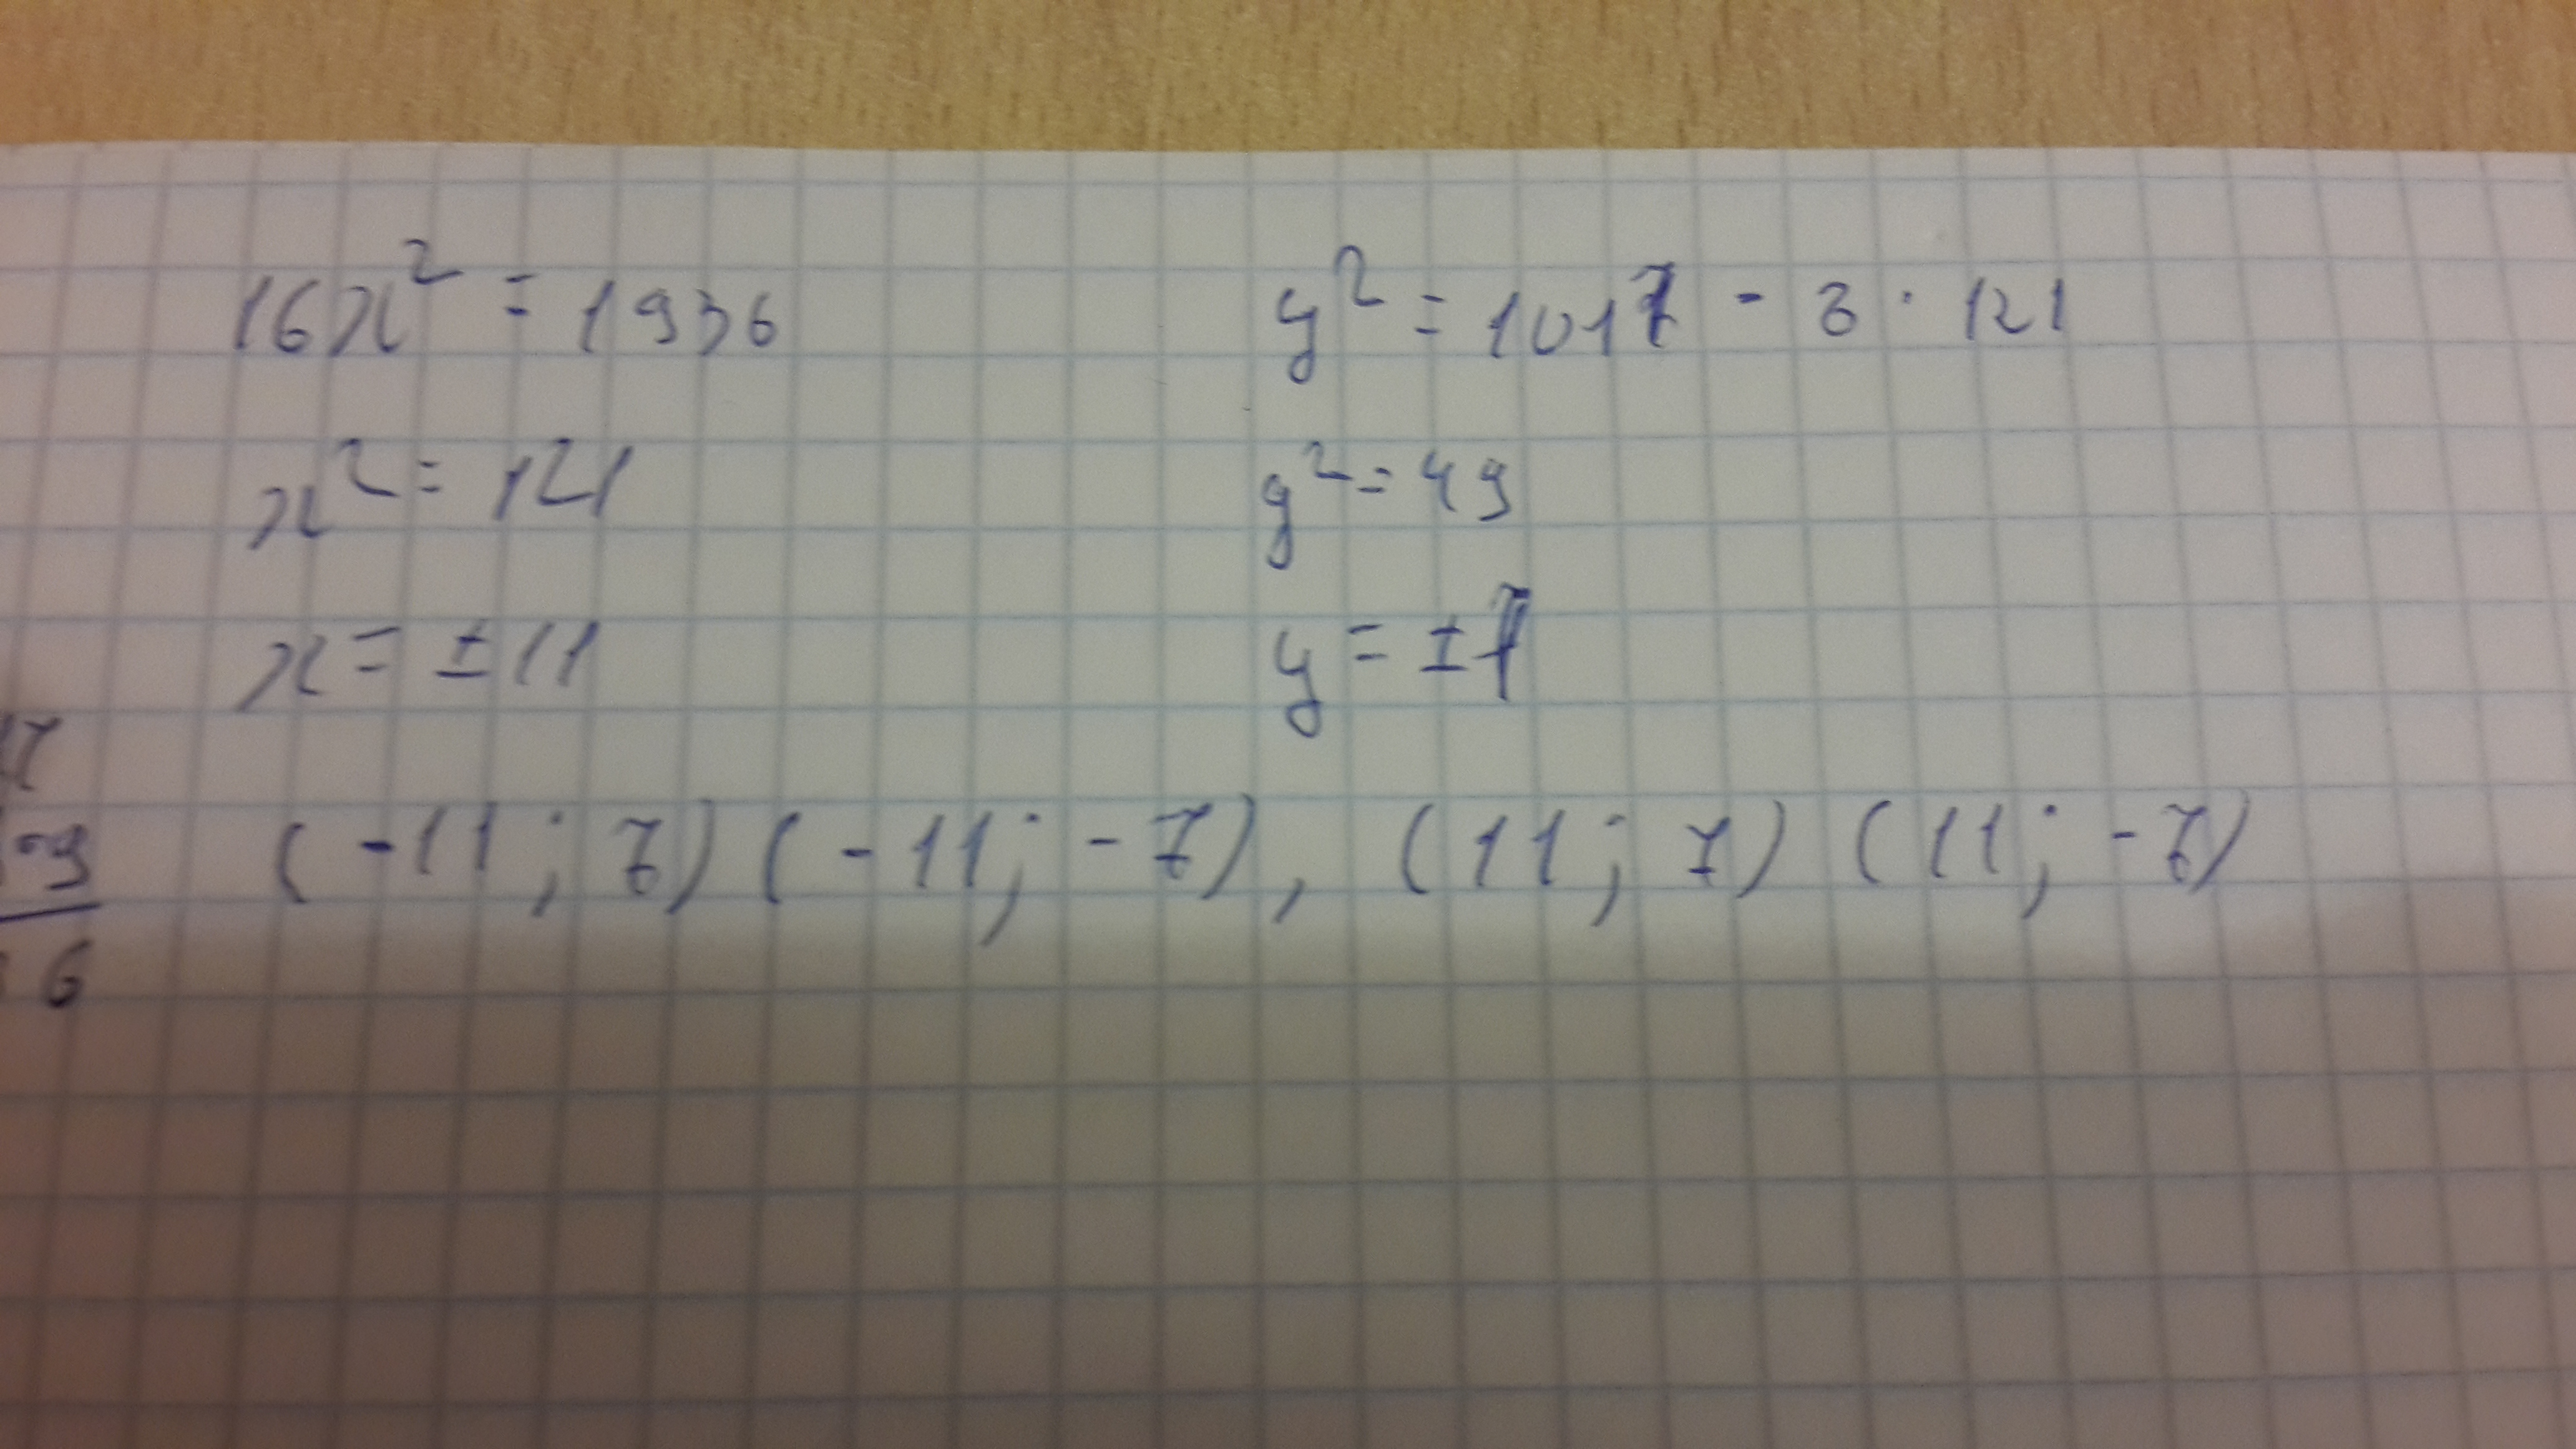 16x² = 1936
y² = 1017 - 8 · 121
x² = 121
y² = 49
x = ±11
y = ±7
7
9
6
(-11; 7) (-11; -7), (11; 7) (11; -7)